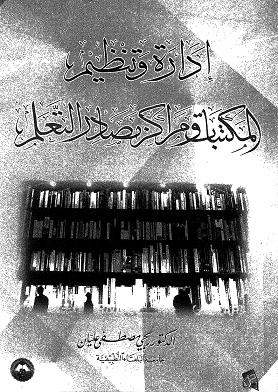 إدارة وتنظيم
المكتبات ومراكز مصادر التعلم
الدكتور ربحي مصطفى عليان
جامعة البلقاء التطبيقية